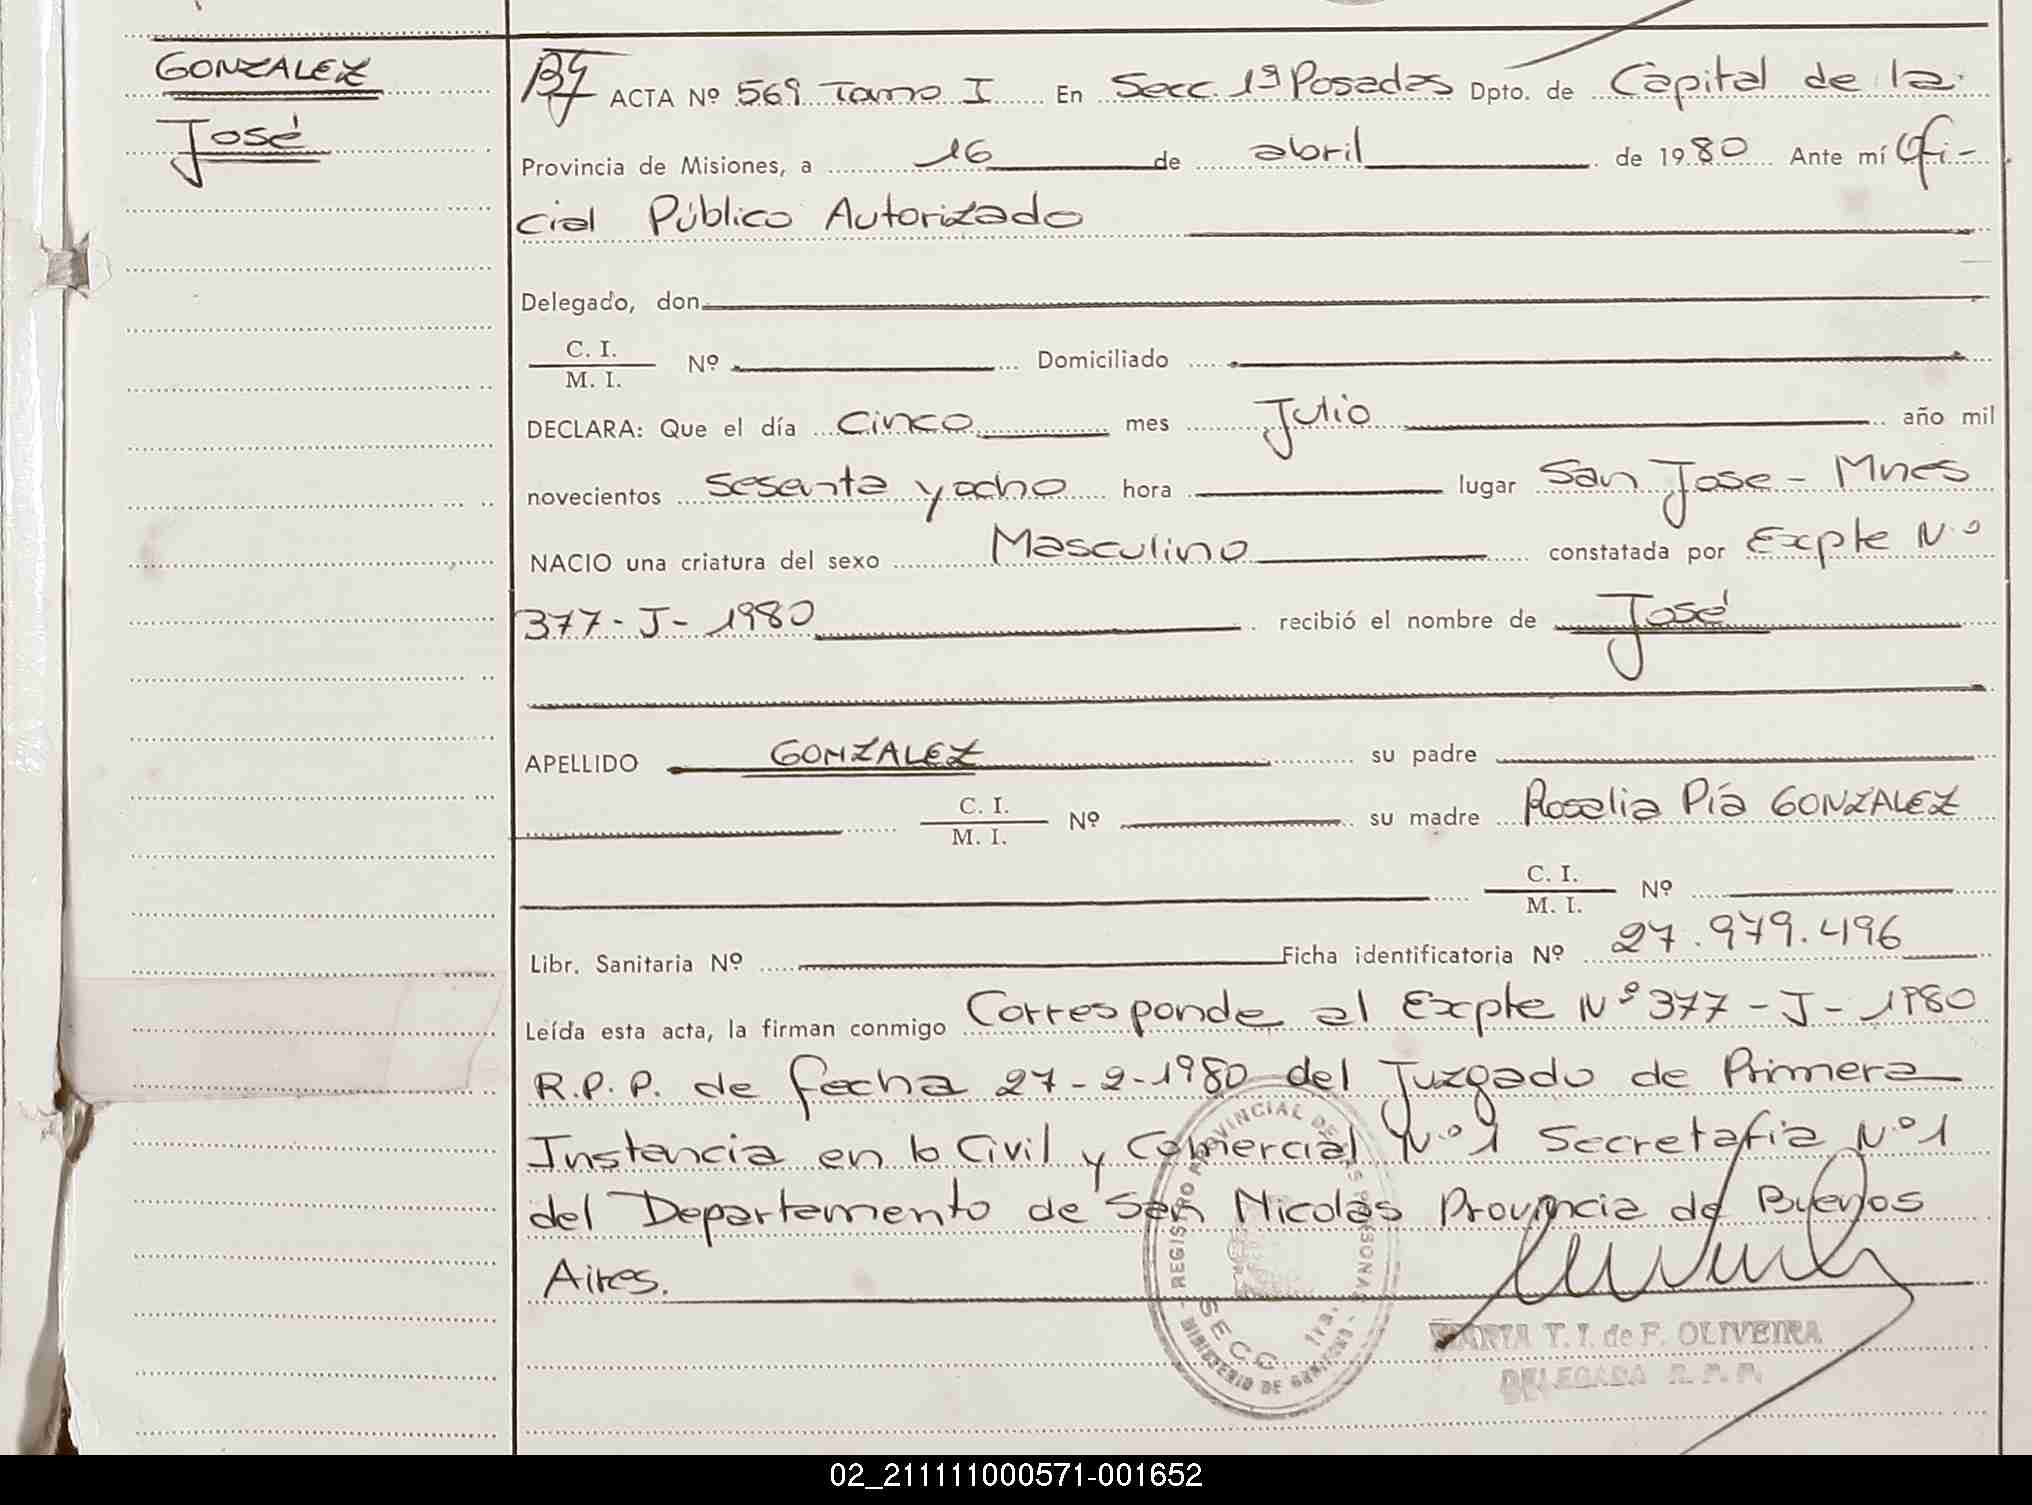 GONZALEZ
José
ACTA Nº 569 Tomo I En Secc. 1ª Posadas Dpto. de Capital de la
Provincia de Misiones, a 16 de abril de 1980 Ante mí Ofi-
cial Público Autorizado
Delegado, don
C. I.
M. I. Nº Domiciliado
DECLARA: Que el día Cinco mes Julio año mil
novecientos sesenta y ocho hora lugar San Jose - Mnes
NACIO una criatura del sexo Masculino constatada por Expte Nº
377-J-1980 recibió el nombre de José
APELLIDO GONZALEZ su padre
C. I.
M. I. Nº su madre Rosalia Pía GONZALEZ
C. I.
M. I. Nº
Libr. Sanitaria Nº Ficha identificatoria Nº 27.979.496
Leída esta acta, la firman conmigo Corresponde al Expte Nº 377-J-1980
R.P.P. de fecha 27-2-1980 del Juzgado de Primera
Instancia en lo Civil y Comercial Nº 1 Secretaria Nº 1
del Departamento de San Nicolás Provincia de Buenos
Aires.
REGISTRO PROVINCIAL DE LAS PERSONAS
SECC. 1ra.
MINISTERIO DE GOBIERNO
MARIA T. I. de F. OLIVEIRA
DELEGADA R. P. P.
02_211111000571-001652